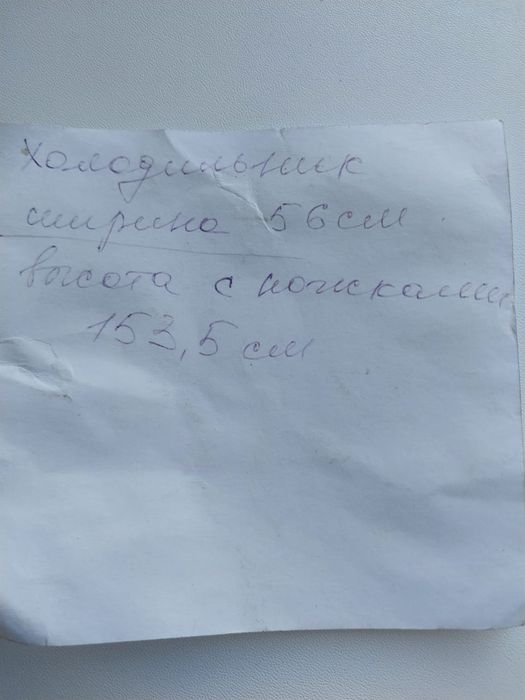 Холодильник
ширина 56см
высота с ножками
153,5 см